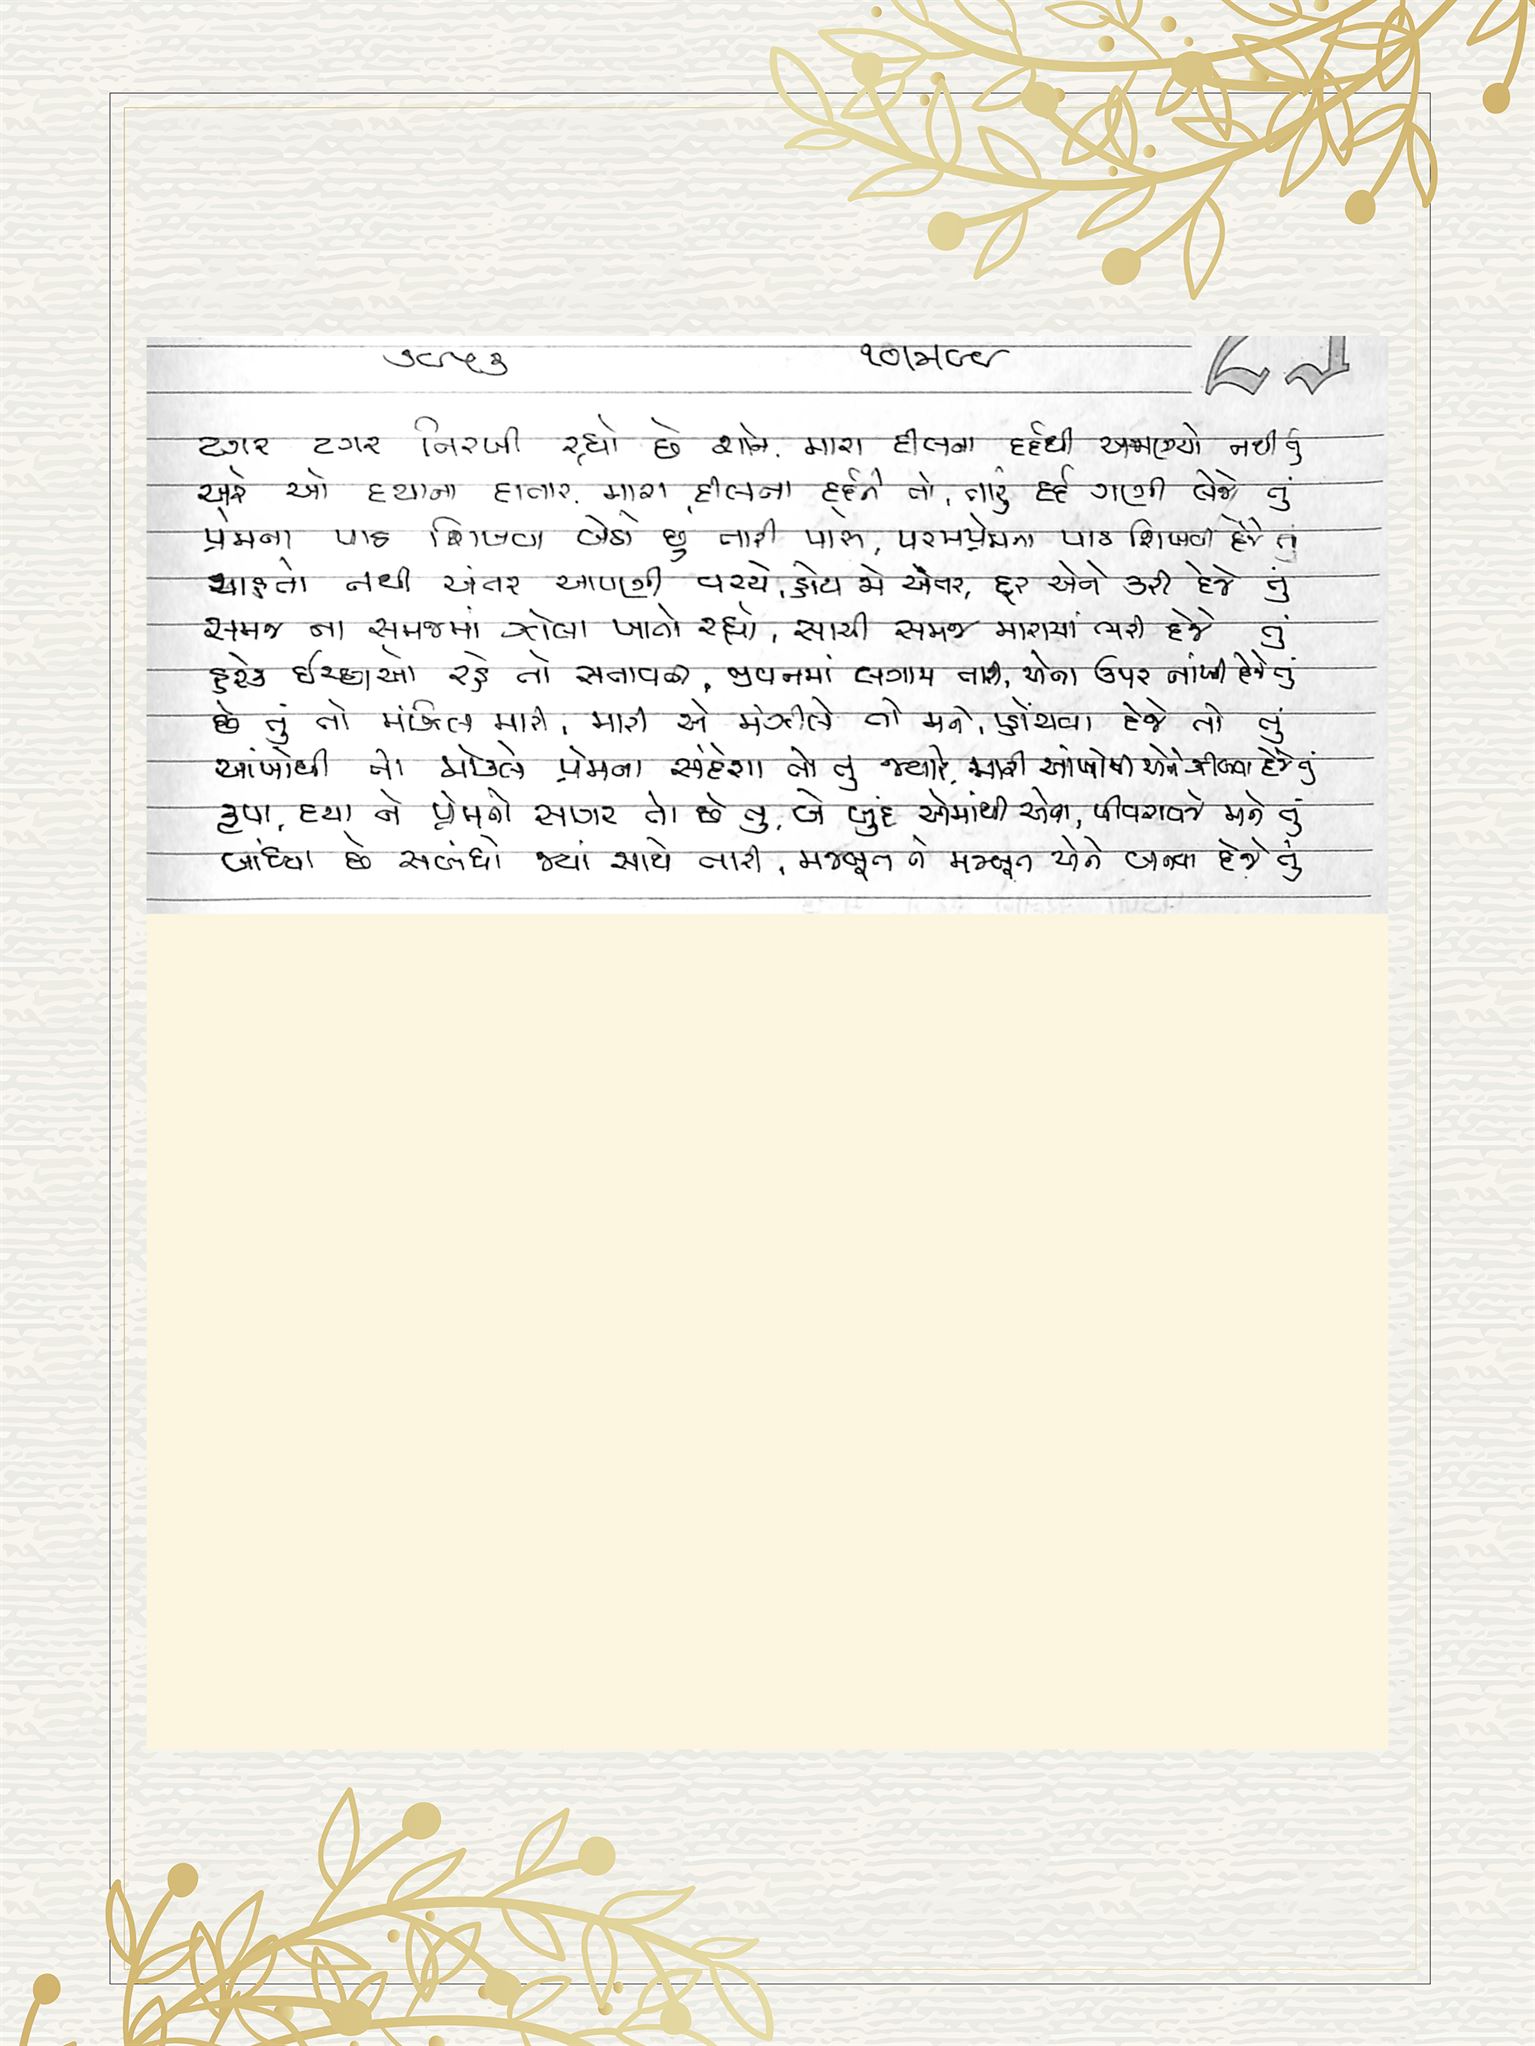 ટગર ટગર નિરખી રહ્યો છે શાને, મારા દીલના દર્દથી અજાણ્યો નથી તું
અરે ઓ દયાના દાતાર, મારા દીલના દર્દને તો, તારું દર્દ ગણી લેજે તું
પ્રેમના પાઠ શિખવા બેઠો છું તારી પાસે, પરમપ્રેમના પાઠ શિખવી દેજે તું
ચાહતો નથી અંતર આપણી વચ્ચે, હોય જો અંતર, દૂર એને કરી દેજે તું
સમજ ના સમજમાં ઝોલા ખાતો રહ્યો, સાચી સમજ મારામાં ભરી દેજે તું
હરેક ઈચ્છાઓ રહે તો સતાવતી, જીવનમાં લગામ તારી, એના ઉપર નાંખી દેજે તું
છે તું તો મંઝિલ મારી, મારી એ મંઝીલે તો મને, પ્હોંચવા દેજે તો તું
આંખોથી તો મોકલે પ્રેમના સંદેશા તો તું જ્યારે, મારી આંખોથી એને ઝીલવા દેજે તું
કૃપા, દયા ને પ્રેમનો સાગર તો છે તું, બે બુંદ એમાંથી એના, પીવરાવજે મને તું
બાંધ્યા છે સબંધો જ્યાં સાથે તારી, મજબૂત ને મજબૂત એને બનવા દેજે તું